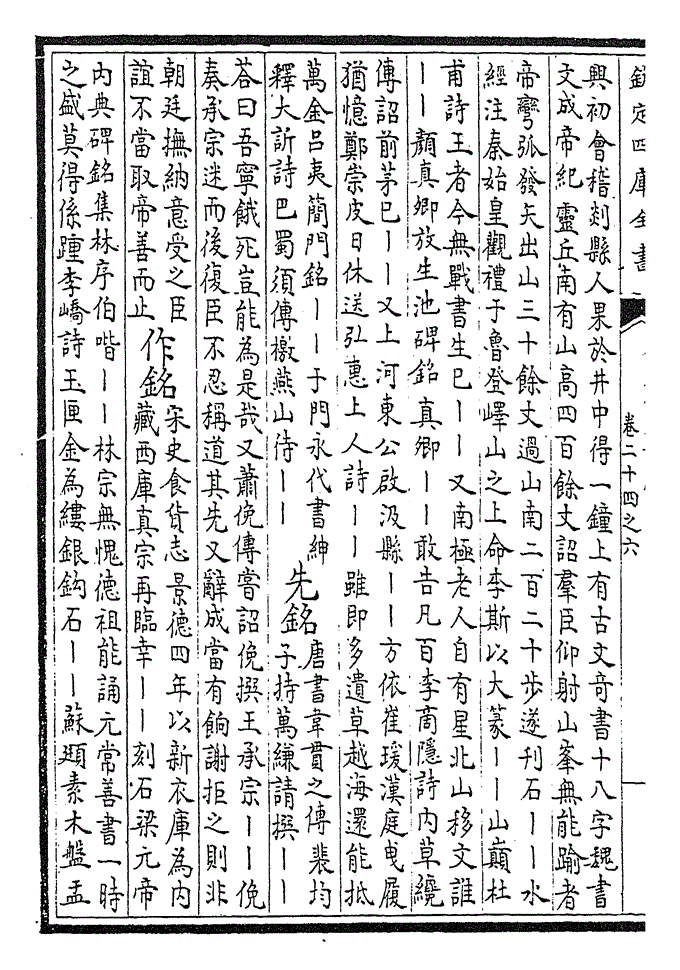 欽定四庫全書
卷二十四之六
興初會稽剡縣人果於井中得一鐘上有古文奇書十八字魏書
文成帝紀靈丘南有山高四百餘丈詔羣臣仰射山峯無能踰者
帝彎弧發矢出山三十餘丈過山南二百二十步遂刊石丨丨水
經注秦始皇觀禮于魯登嶧山之上命李斯以大篆丨丨山巔杜
甫詩王者今無戰書生已丨丨又南極老人自有星北山移文誰
丨丨顏真卿放生池碑銘真卿丨丨敢告凡百李商隱詩内草纔
傳詔前茅已丨丨又上河東公啟汲縣丨丨方依崔瑗漢庭曳履
猶憶鄭崇皮日休送弘惠上人詩丨丨雖即多遺草越海還能抵
萬金吕夷簡門銘丨丨于門永代書紳
先銘
唐書韋貫之傳裴均
子持萬縑請撰丨丨
釋大訢詩巴蜀須傳檄燕山待丨丨
荅曰吾寧餓死豈能為是哉又蕭俛傳嘗詔俛撰王承宗丨丨俛
奏承宗迷而後復臣不忍稱道其先又辭成當有餉謝拒之則非
朝廷撫納意受之臣
誼不當取帝善而止
作銘
宋史食貨志景德四年以新衣庫為内
藏西庫真宗再臨幸丨丨刻石梁元帝
内典碑銘集林序伯喈丨丨林宗無愧德祖能誦元常善書一時
之盛莫得係踵李嶠詩玉匣金為縷銀鈎石丨丨蘇頲素木盤盂